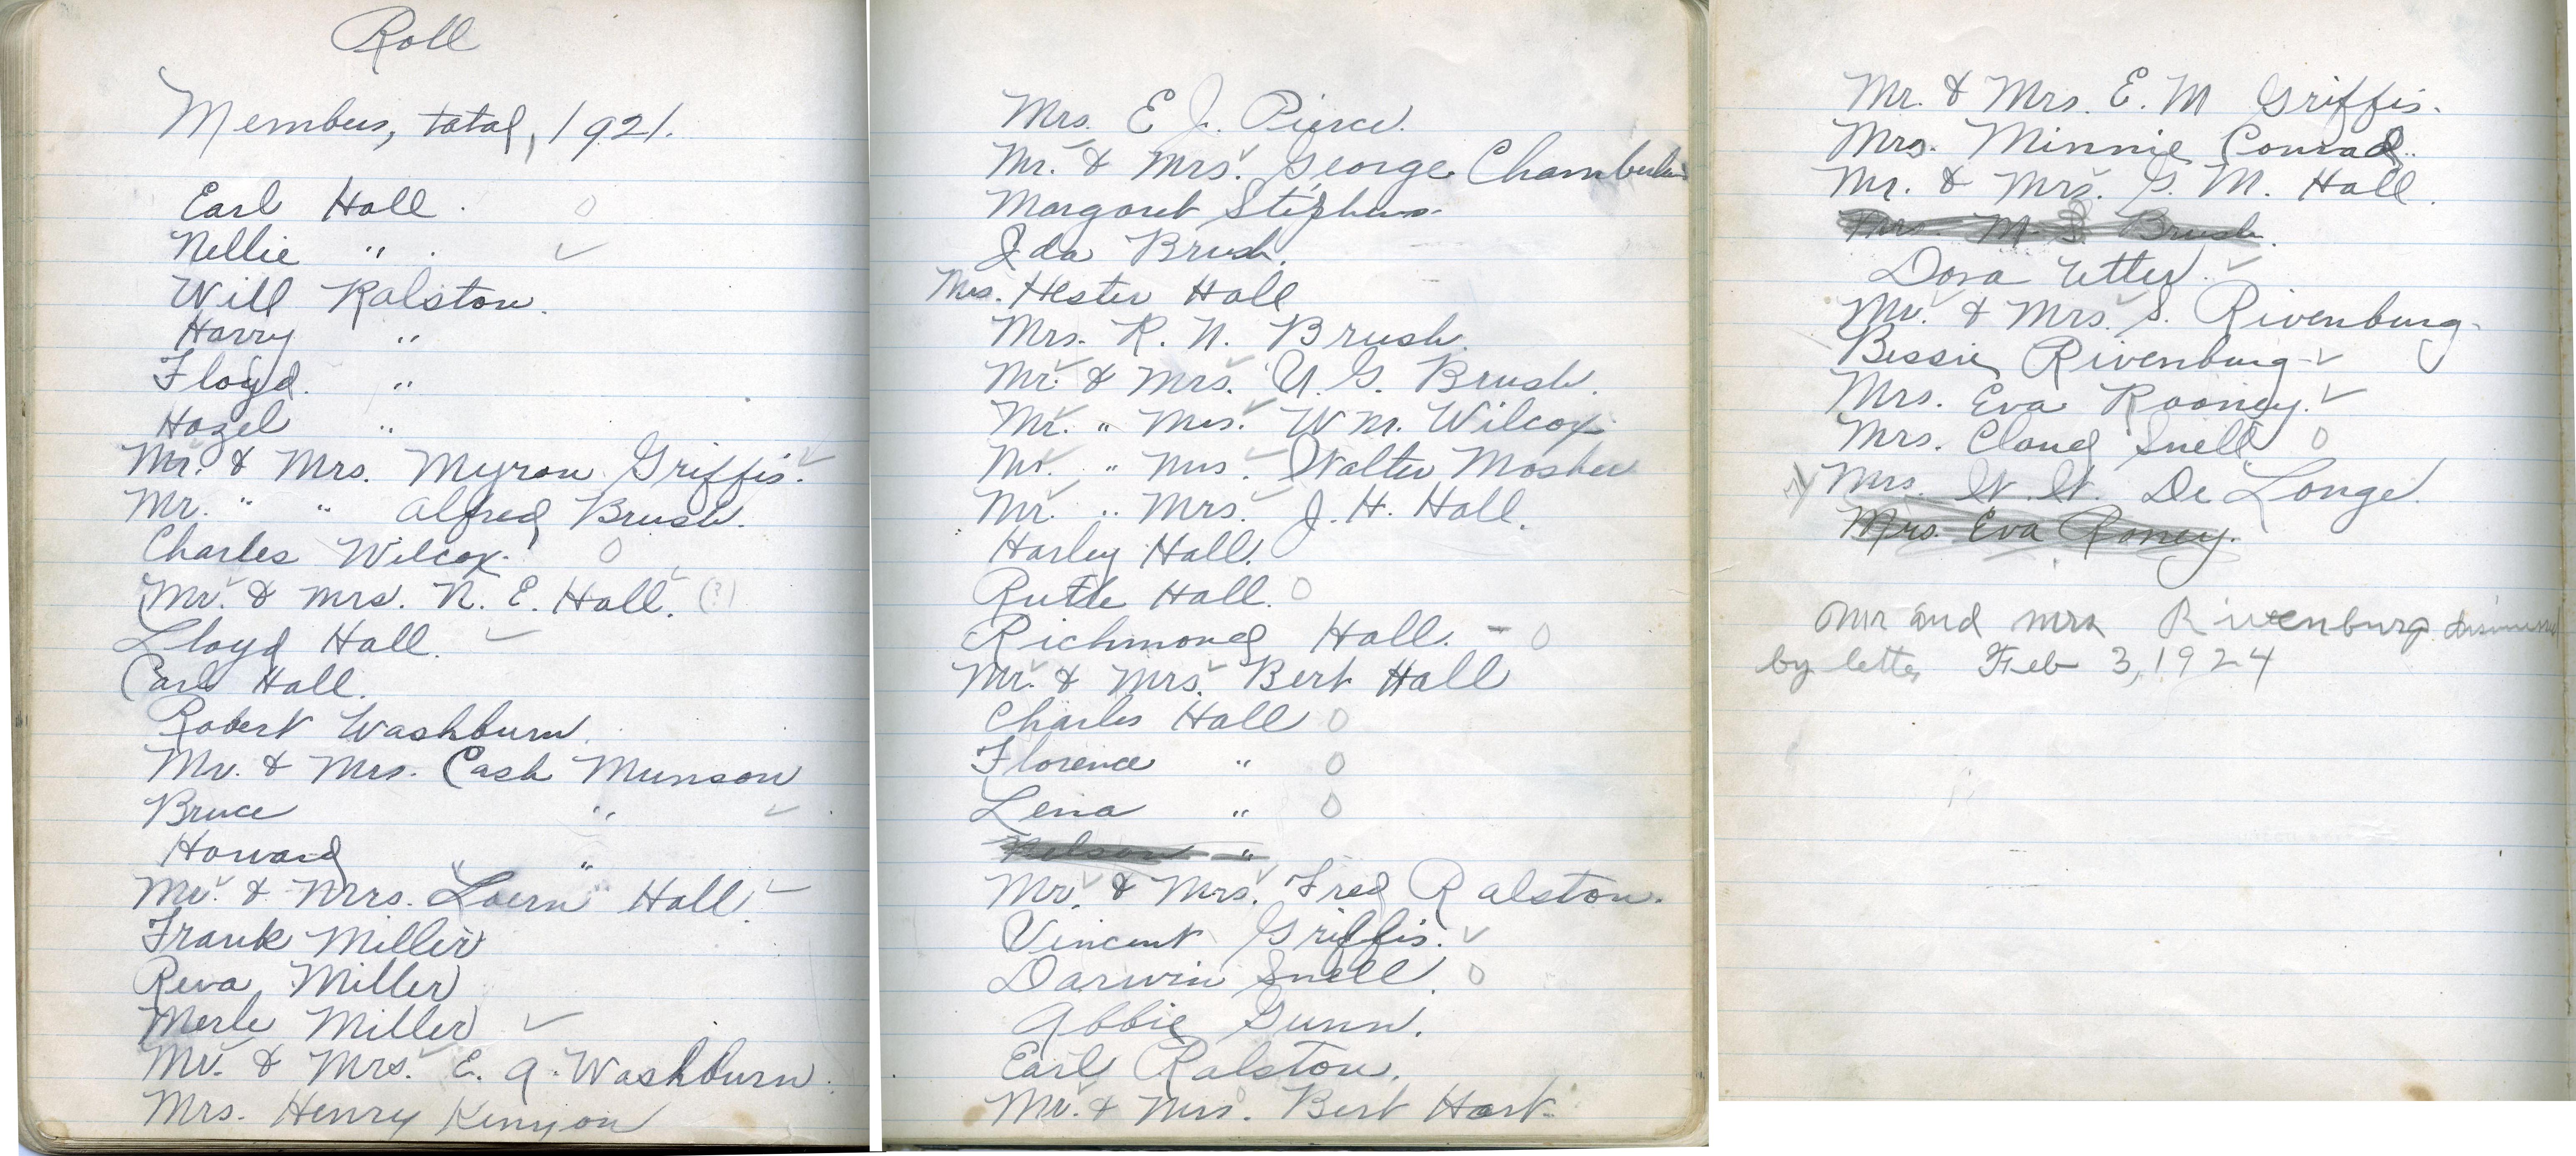 Roll
Members, total, 1921.
Earl Hall. 0
Nellie " . ✓
Will Ralston.
Harry "
Floyd. "
Hazel "
Mr. & Mrs. Myron Griffis. ✓
Mr. " " Alfred Brush.
Charles Wilcox. 0
Mr. & Mrs. N. E. Hall. (?)
Lloyd Hall. ✓
Carl Hall.
Robert Washburn.
Mr. & Mrs. Cash Munson
Bruce " ✓
Howard "
Mr. & Mrs. "Loern" Hall. ✓
Frank Miller
Reva Miller
Merle Miller ✓
Mr. & Mrs. E. A. Washburn.
Mrs. Henry Kenyon
Mrs. E. J. Pierce.
Mr. & Mrs. George Chamberlin
Margaret Stephens.
Ida Brush.
Mrs. Hester Hall
Mrs. R. N. Brush.
Mr. & Mrs. U. G. Brush.
Mr. " Mrs. Wm. Wilcox
Mr. " Mrs. Walter Mosher
Mr. " Mrs. J. H. Hall.
Harley Hall.
Ruth Hall. 0
Richmond Hall. - 0
Mr. & Mrs. Bert Hall
Charles Hall 0
Florence " 0
Lena " 0
Nelson "
Mr. & Mrs. Fred Ralston.
Vincent Griffis. ✓
Darwin Snell. 0
Abbie Gunn.
Earl Ralston.
Mr. & Mrs. Bert Hart.
Mr. & Mrs. E. M Griffis.
Mrs. Minnie Conrad.
Mr. & Mrs. G. M. Hall.
Mrs. M. S. Brush.
Dora Utter. ✓
Mr. & Mrs. S. Rivenburg.
Bessie Rivenburg ✓
Mrs. Eva Rooney. ✓
Mrs. Claud Snell 0
Mrs. W. W. De Longe.
Mrs. Eva Roney.
Mr and Mrs Rivenburg dismissed
by letter Feb 3, 1924